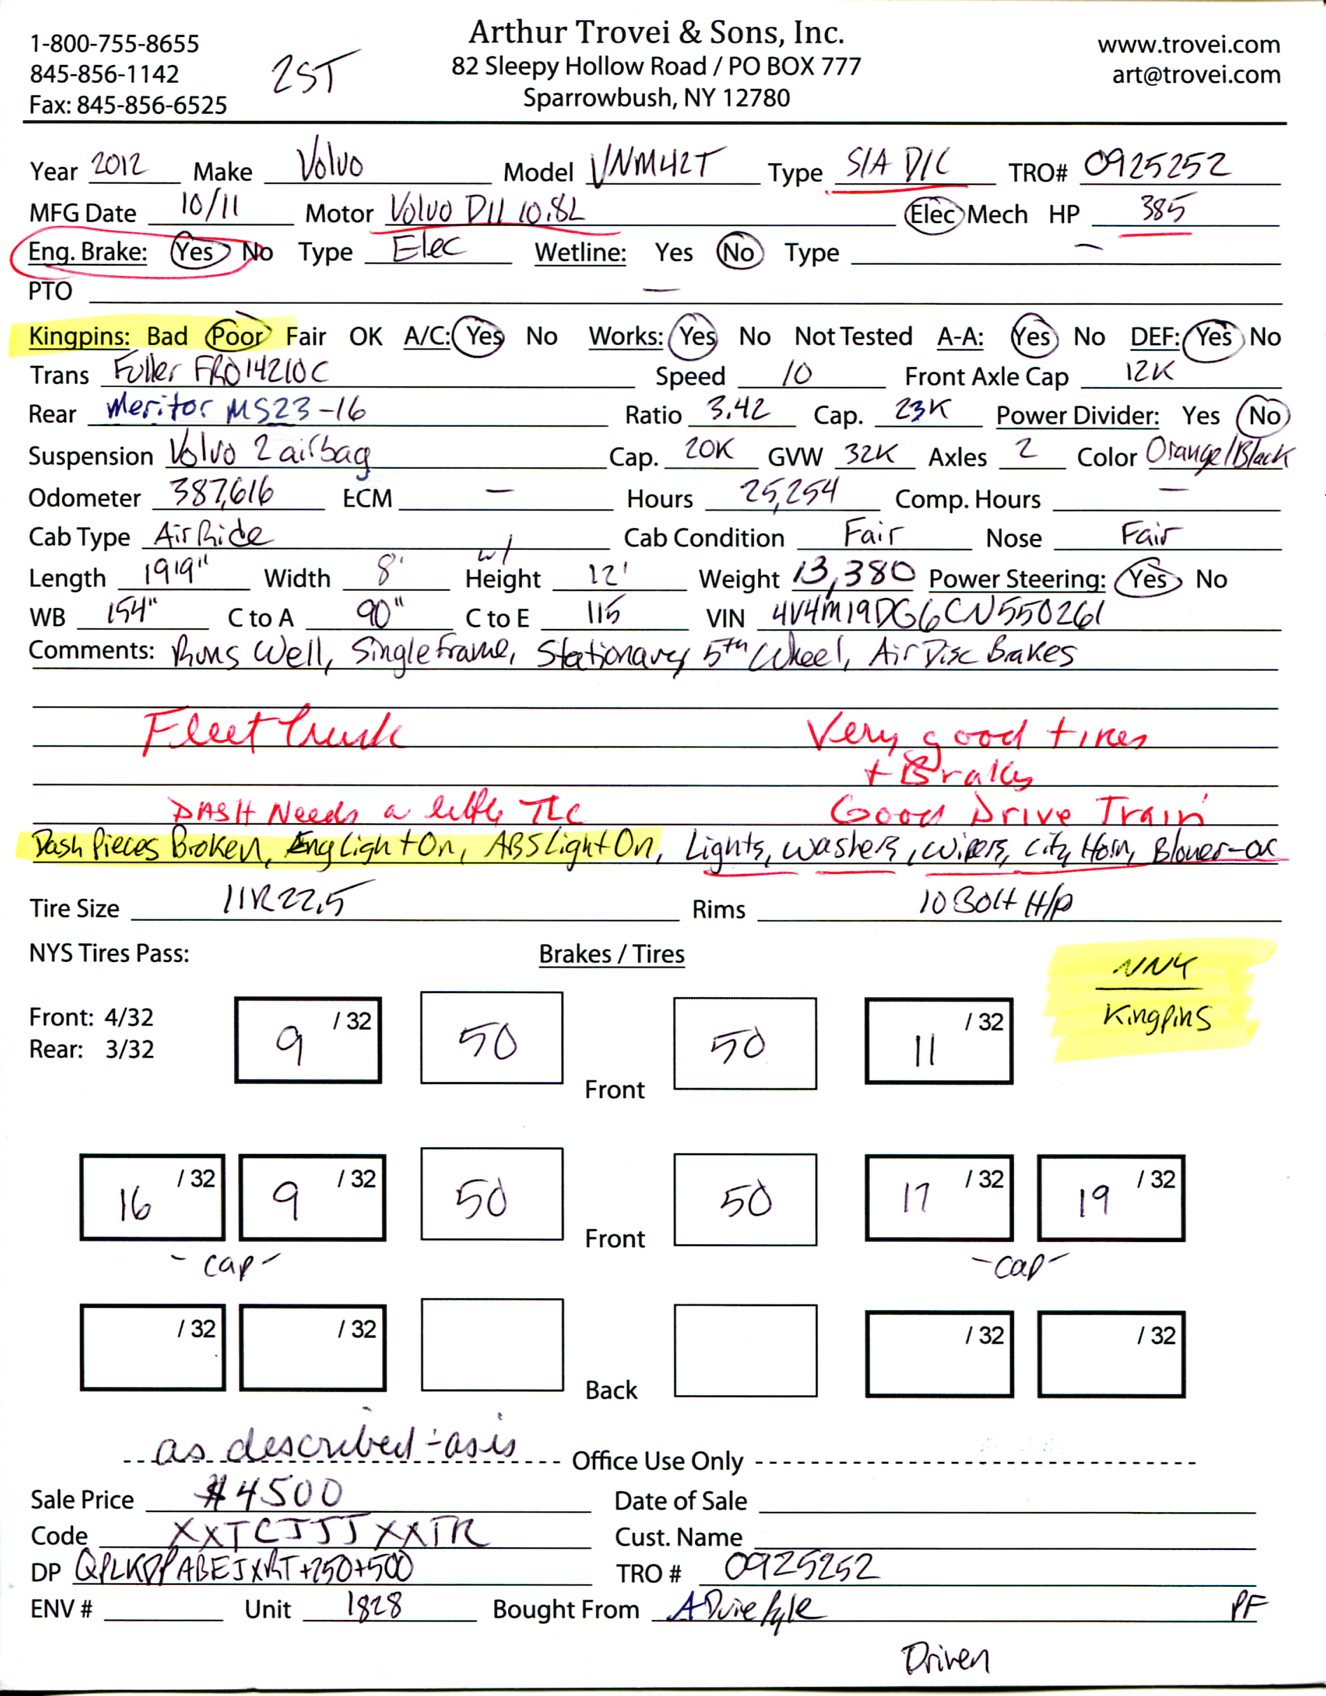 Arthur Trovei & Sons, Inc.
1-800-755-8655 82 Sleepy Hollow Road / PO BOX 777 www.trovei.com
845-856-1142 2ST Sparrowbush, NY 12780 art@trovei.com
Fax: 845-856-6525
Year 2012 Make Volvo Model VNM42T Type S/A D/C TRO# 0925252
MFG Date 10/11 Motor Volvo D11 10.8L Elec Mech HP 385
Eng. Brake: Yes No Type Elec Wetline: Yes No Type —
PTO —
Kingpins: Bad Poor Fair OK A/C: Yes No Works: Yes No Not Tested A-A: Yes No DEF: Yes No
Trans Fuller FRO14210C Speed 10 Front Axle Cap 12K
Rear Meritor MS23-16 Ratio 3.42 Cap. 23K Power Divider: Yes No
Suspension Volvo 2 airbag Cap. 20K GVW 32K Axles 2 Color Orange/Black
Odometer 387,616 ECM — Hours 25,254 Comp. Hours —
Cab Type Air Ride Cab Condition Fair Nose Fair
Length 19'9" Width 8' w/ Height 12' Weight 13,380 Power Steering: Yes No
WB 154" C to A 90" C to E 115 VIN 4V4M19DG6CN550261
Comments: Runs Well, Single Frame, Stationary 5th Wheel, Air Disc Brakes
Fleet Truck Very good tires
+ Brakes
DASH Needs a little TLC Good Drive Train
Dash Pieces Broken, Eng Light On, ABS Light On, Lights, Washers, Wipers, City Horn, Blower-ok
Tire Size 11R22.5 Rims 10 Bolt H/p
NYS Tires Pass: Brakes / Tires NNY
Kingpins
Front: 4/32 9 /32 50 50 11 /32
Rear: 3/32
Front
16 /32 9 /32 50 50 17 /32 19 /32
Front
-cap- -cap-
/32 /32 /32 /32
Back
as described - as is Office Use Only
Sale Price $4500 Date of Sale
Code XXTCJJJXXTR Cust. Name
DP QPLKDPABEJXRT+250+500 TRO # 0925252
ENV # Unit 1828 Bought From PF
Driven